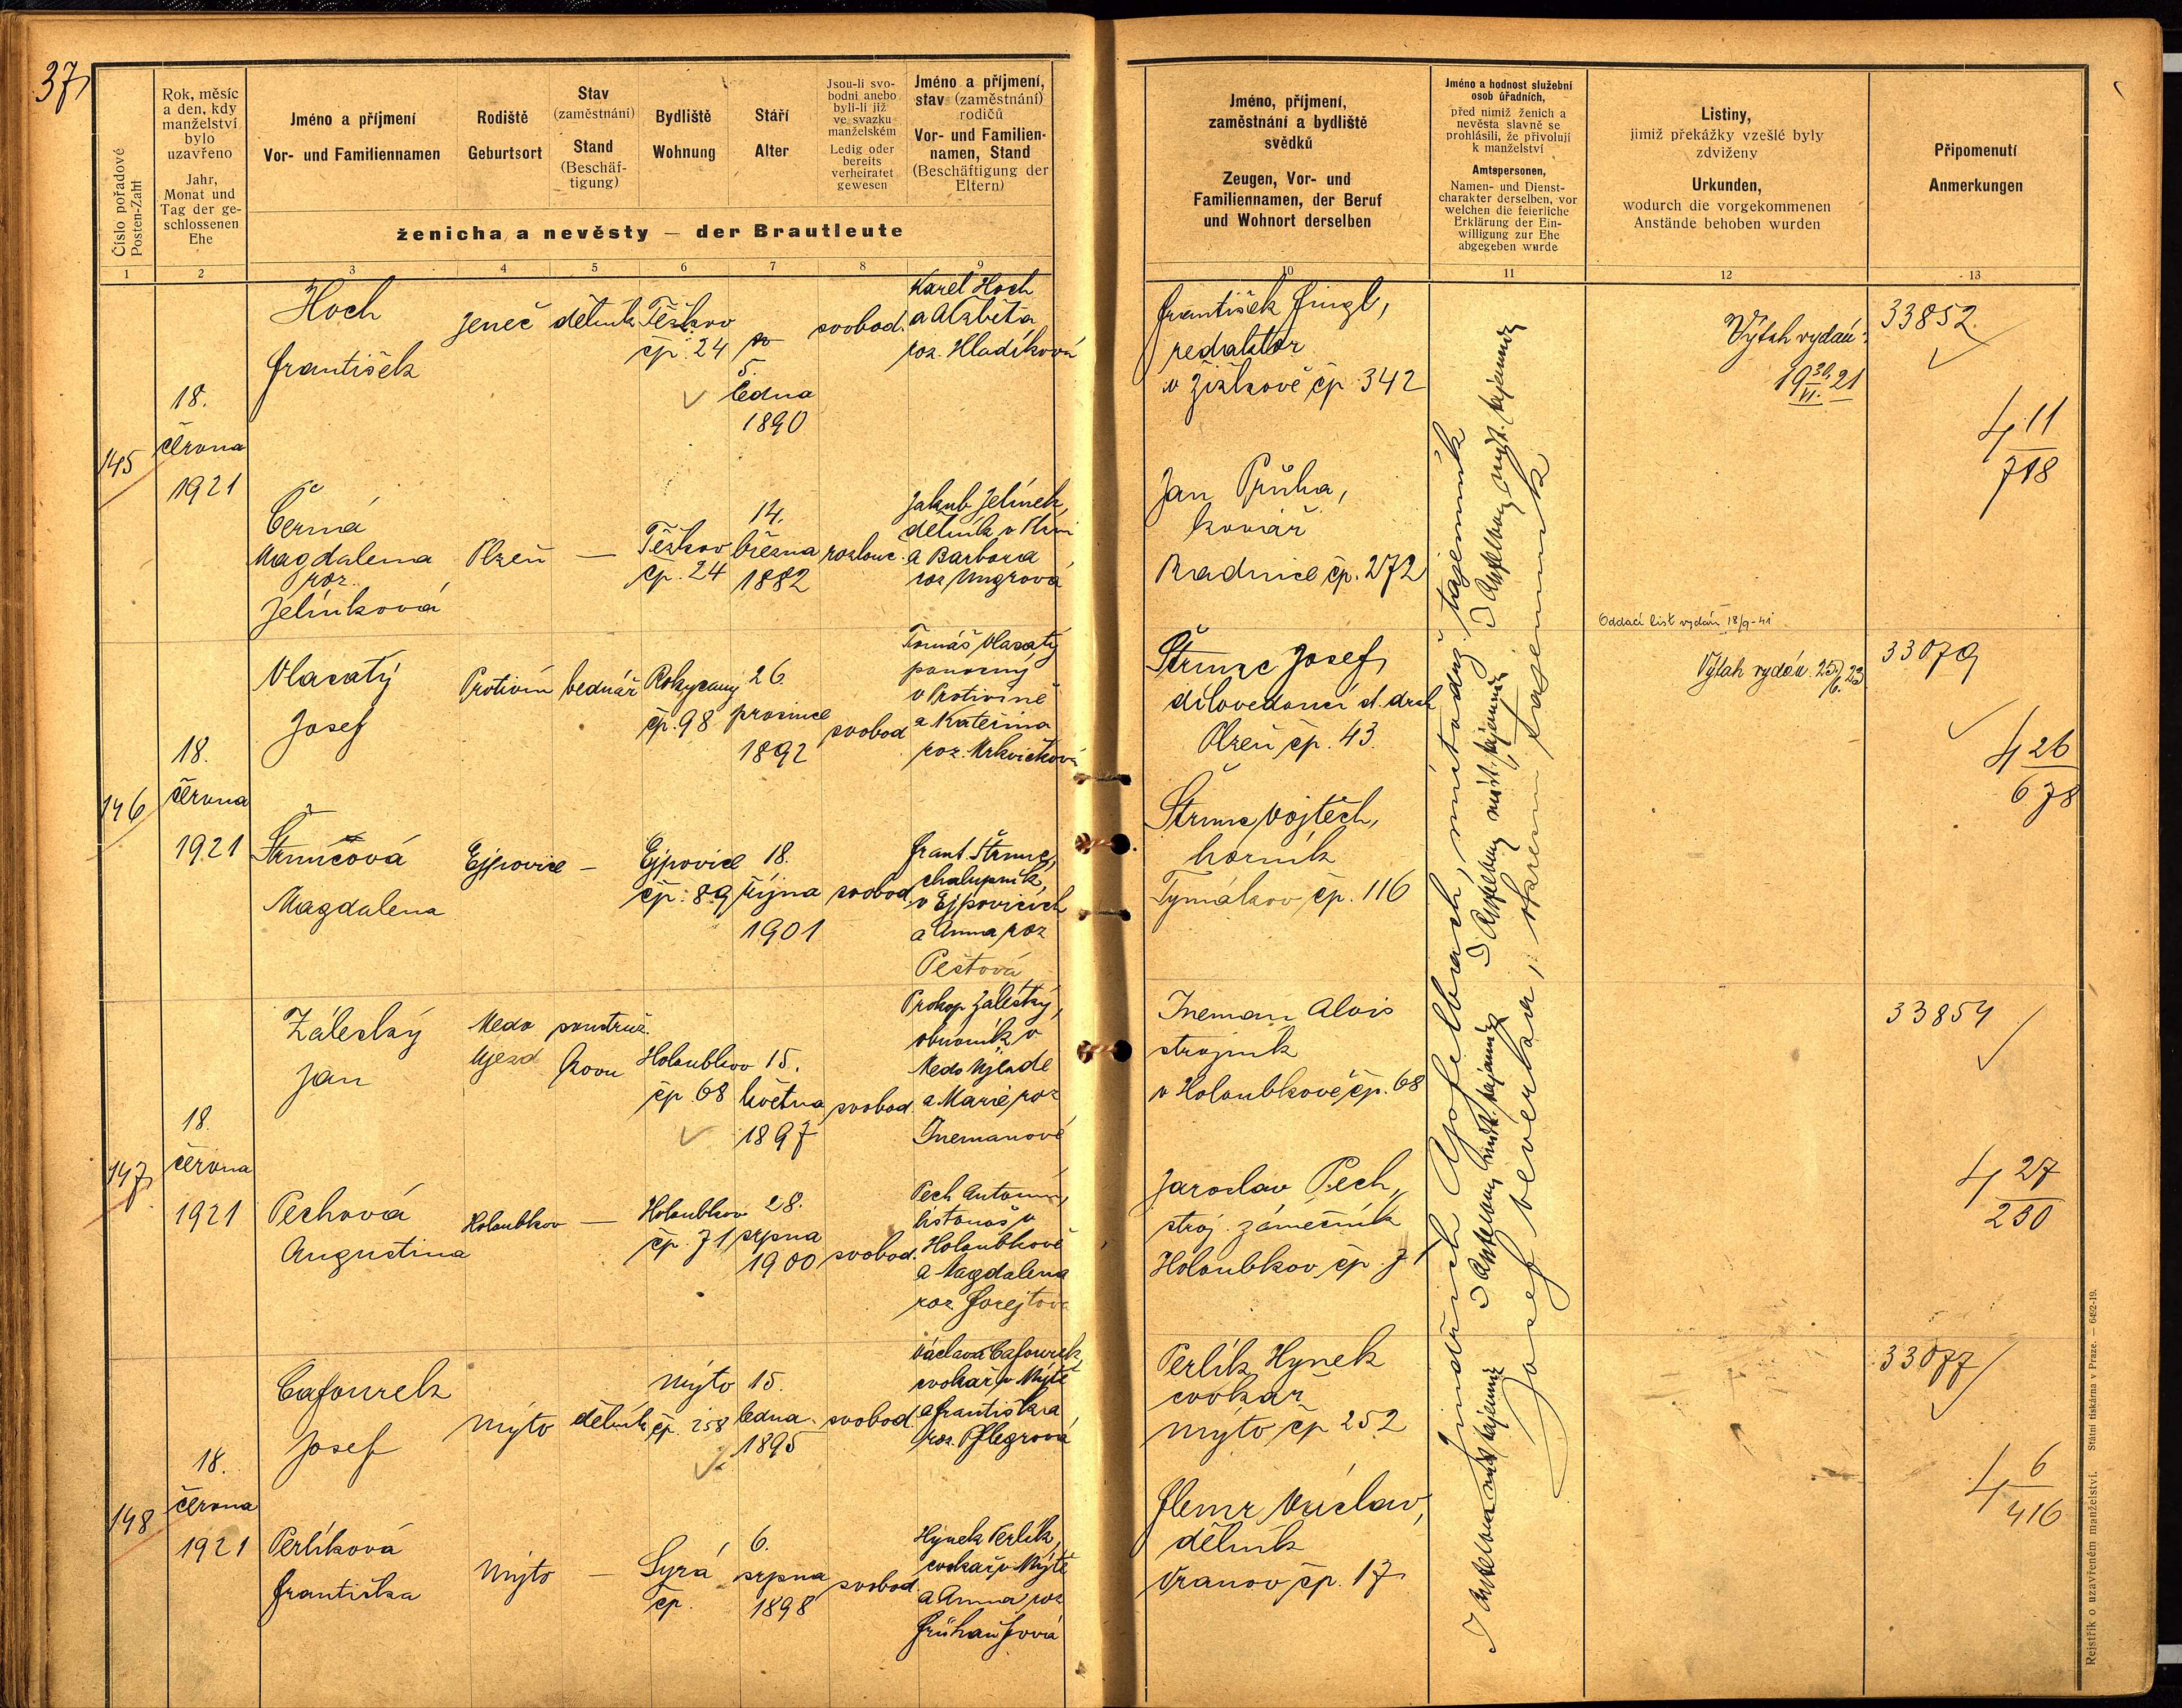 37
Číslo pořadové
Posten-Zahl
Rok, měsíc
a den, kdy
manželství
bylo
uzavřeno
Jahr,
Monat und
Tag der ge-
schlossenen
Ehe
Jméno a příjmení
Vor- und Familiennamen
Rodiště
Geburtsort
Stav
(zaměstnání)
Stand
(Beschäf-
tigung)
Bydliště
Wohnung
Stáří
Alter
Jsou-li svo-
bodni anebo
byli-li již
ve svazku
manželském
Ledig oder
bereits
verheiratet
gewesen
Jméno a příjmení,
stav (zaměstnání)
rodičů
Vor- und Familien-
namen, Stand
(Beschäftigung der
Eltern)
ženicha a nevěsty — der Brautleute
Jméno, příjmení,
zaměstnání a bydliště
svědků
Zeugen, Vor- und
Familiennamen, der Beruf
und Wohnort derselben
Jméno a hodnost služební
osob úřadních,
před nimiž ženich a
nevěsta slavně se
prohlásili, že přivolují
k manželství
Amtspersonen,
Namen- und Dienst-
charakter derselben, vor
welchen die feierliche
Erklärung der Ein-
willigung zur Ehe
abgegeben wurde
Listiny,
jimiž překážky vzešlé byly
zdviženy
Urkunden,
wodurch die vorgekommenen
Anstände behoben wurden
Připomenutí
Anmerkungen
1 2 3 4 5 6 7 8 9 10 11 12 13
145
18.
června
1921
Hoch
František
Jeneč
dělník
Těškov
čp. 24
5.
ledna
1890
svobod.
Karel Hoch
a Alžběta
roz. Hladíková
Černá
Magdalena
roz.
Jelínková
Plzeň
—
Těškov
čp. 24
14.
března
1882
rozlouč.
Jakub Jelínek,
dělník v Plzni
a Barbora
roz Ungrová
František Fingl,
redaktor
v Žižkově čp. 342
Jan Průha,
kovář
Radnice čp. 272
Výtah vydán:
19 30/VI. 21
33852
4 11
718
146
18.
června
1921
Vlasatý
Josef
Protivín
bednář
Rokycany
čp. 98
26.
prosince
1892
svobod
Tomáš Vlasatý
ponocný
v Protivíně
a Kateřina
roz. Mrkvičková
Štruncová
Magdalena
Ejpovice
—
Ejpovice
čp. 89
18.
října
1901
svobod.
Frant. Štrunc,
chalupník,
v Ejpovicích
a Anna roz
Peštová
Štrunc Josef,
dílovedoucí s. drah
Plzeň čp. 43.
Štrunc Vojtěch,
horník
Tymákov čp. 116
Oddací list vydán 18/9-41
Výtah vydán 25/6. 23
33079
4 26
678
147
18.
června
1921
Záleský
Jan
Medo
Ujezd
soustruž.
kovu
Holoubkov
čp. 68
15.
května
1897
svobod.
Prokop Záleský,
obuvník v
Medo Újezdě
a Marie roz
Inemanové
Pechová
Augustina
Holoubkov
—
Holoubkov
čp. 71
28.
srpna
1900
svobod.
Pech Antonín,
listonoš v
Holoubkově
a Magdalena
roz. Forejtová
Ineman Alois
strojník
v Holoubkově čp. 68
Jaroslav Pech,
stroj. zámečník
Holoubkov čp. 71
33854
4 27
230
148
18.
června
1921
Cafourek
Josef
Mýto
dělník
Mýto
čp. 258
15.
ledna
1895
svobod.
Václav Cafourek,
cvokař v Mýtě
a Františka
roz. Pflegrová
Perlíková
Františka
Mýto
—
Syrá
čp.
6.
srpna
1898
svobod.
Hynek Perlík,
cvokař v Mýtě
a Anna roz
Frühaufová
Perlík Hynek
cvokař
Mýto čp 252
Václav,
dělník
Vranov čp. 17
33077
4 6
416
Jindřich Apfelbach, místodrž. tajemník
Josef Beverka, okresní tajemník
Rejstřík o uzavřeném manželství. Státní tiskárna v Praze. — 6492-19.